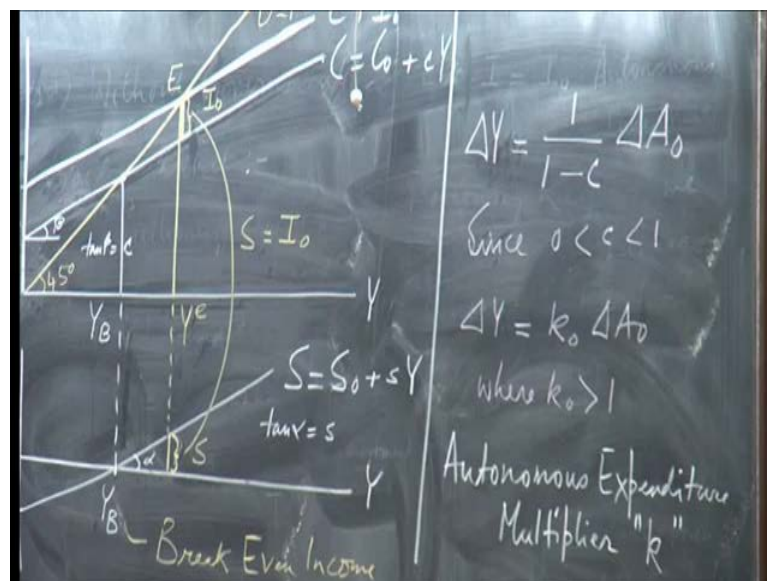 C = C₀ + cY
E
I₀
β
tanβ = c
45°
S = I₀
Y_B
Yᵉ
Y
S = S₀ + sY
tanα = s
α
S
Y_B
Y
Break Even Income
ΔY = 1/(1-c) ΔA₀
Since 0 < c < 1
ΔY = k₀ ΔA₀
where k₀ > 1
Autonomous Expenditure
Multiplier "k"